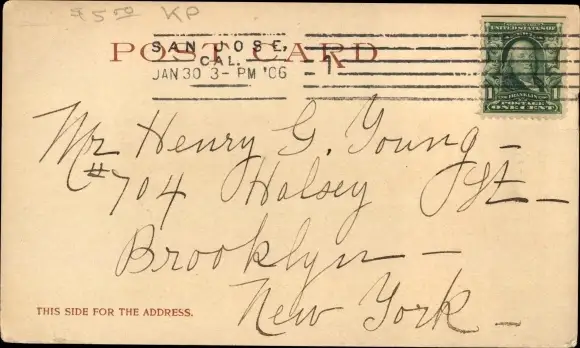 $5.00 KP
POST CARD
SAN JOSE,
CAL.
JAN 30 3- PM '06
1
UNITED STATES OF
FRANKLIN
1 1
POSTAGE
ONE CENT
Mr Henry G. Young -
#704 Halsey St -
Brooklyn -
New York -
THIS SIDE FOR THE ADDRESS.